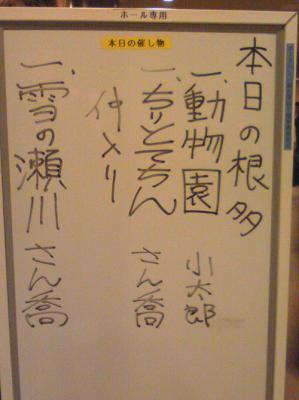 ホール専用
本日の催し物
本日の根多
一、動物園 小太郎
一、ちりとてちん さん喬
仲入り
一、雪の瀬川 さん喬